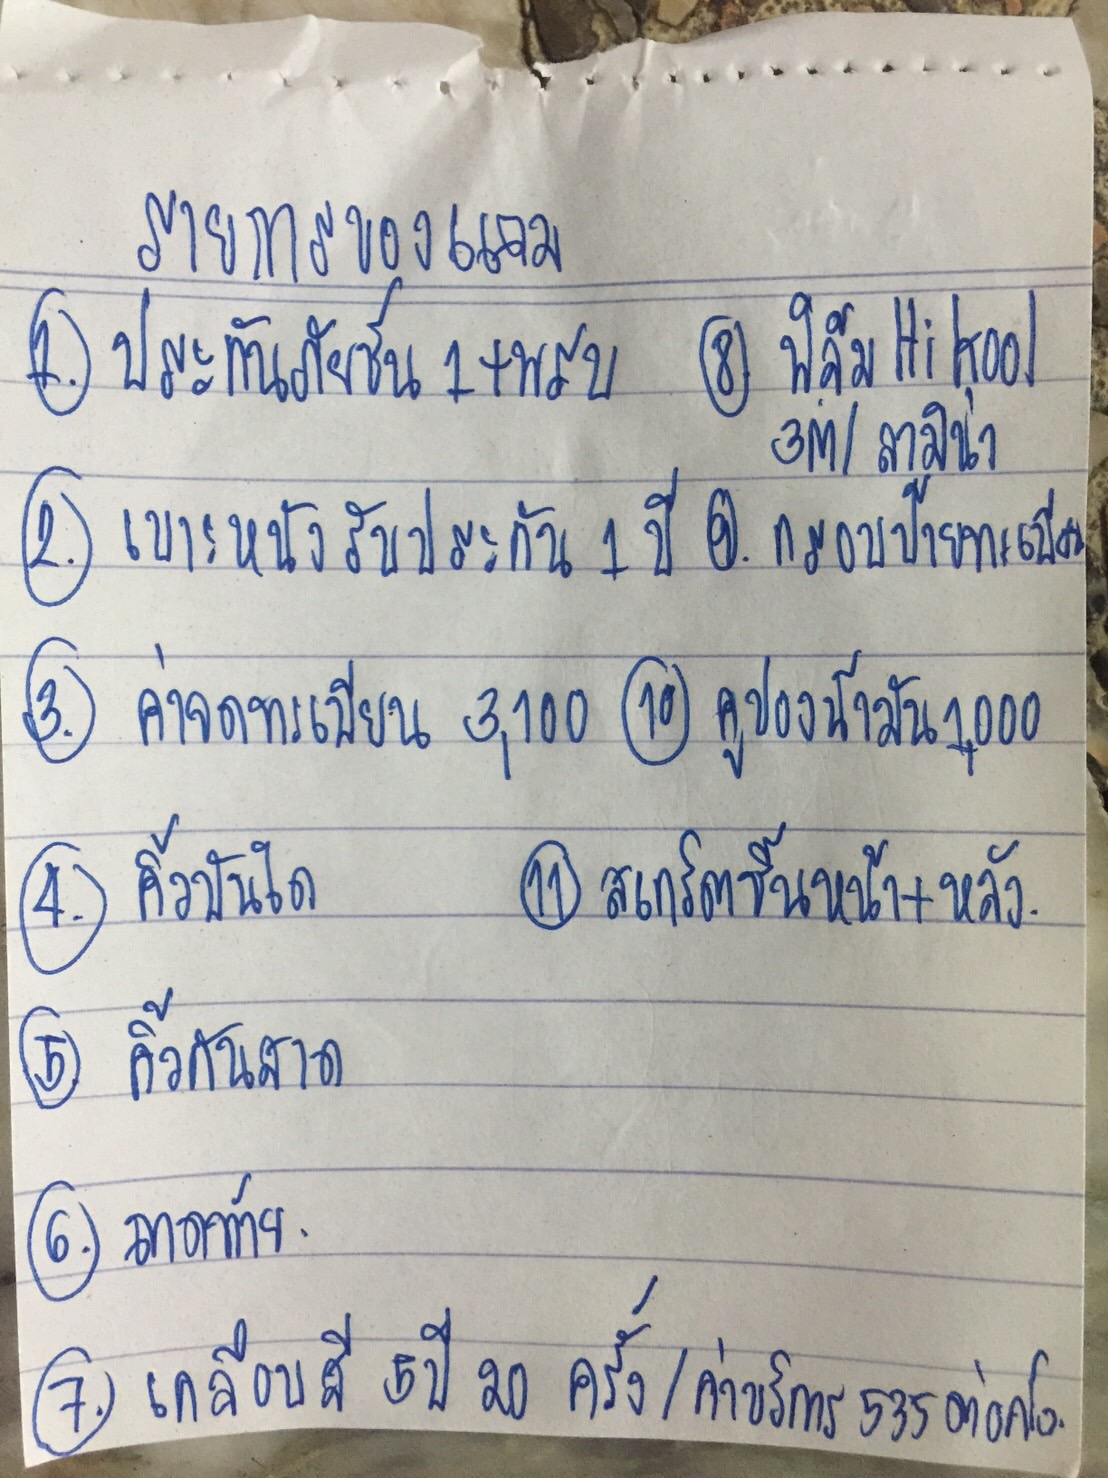 รายการของแถม
1. ประกันภัยชั้น 1 + พรบ
2. เบาะหนัง รับประกัน 1 ปี
3. ค่าจดทะเบียน 3,100
4. คิ้วบันได
5 คิ้วกันสาด
6. ถาดท้าย.
7. เคลือบสี 5 ปี 20 ครั้ง / ค่าบริการ 535 ต่อครั้ง.
8 ฟิล์ม Hi Kool
3M / ลามิน่า
9. กรอบป้ายทะเบียน
10 คูปองน้ำมัน 1,000
11 สเกิร์ตชิ้นหน้า + หลัง.